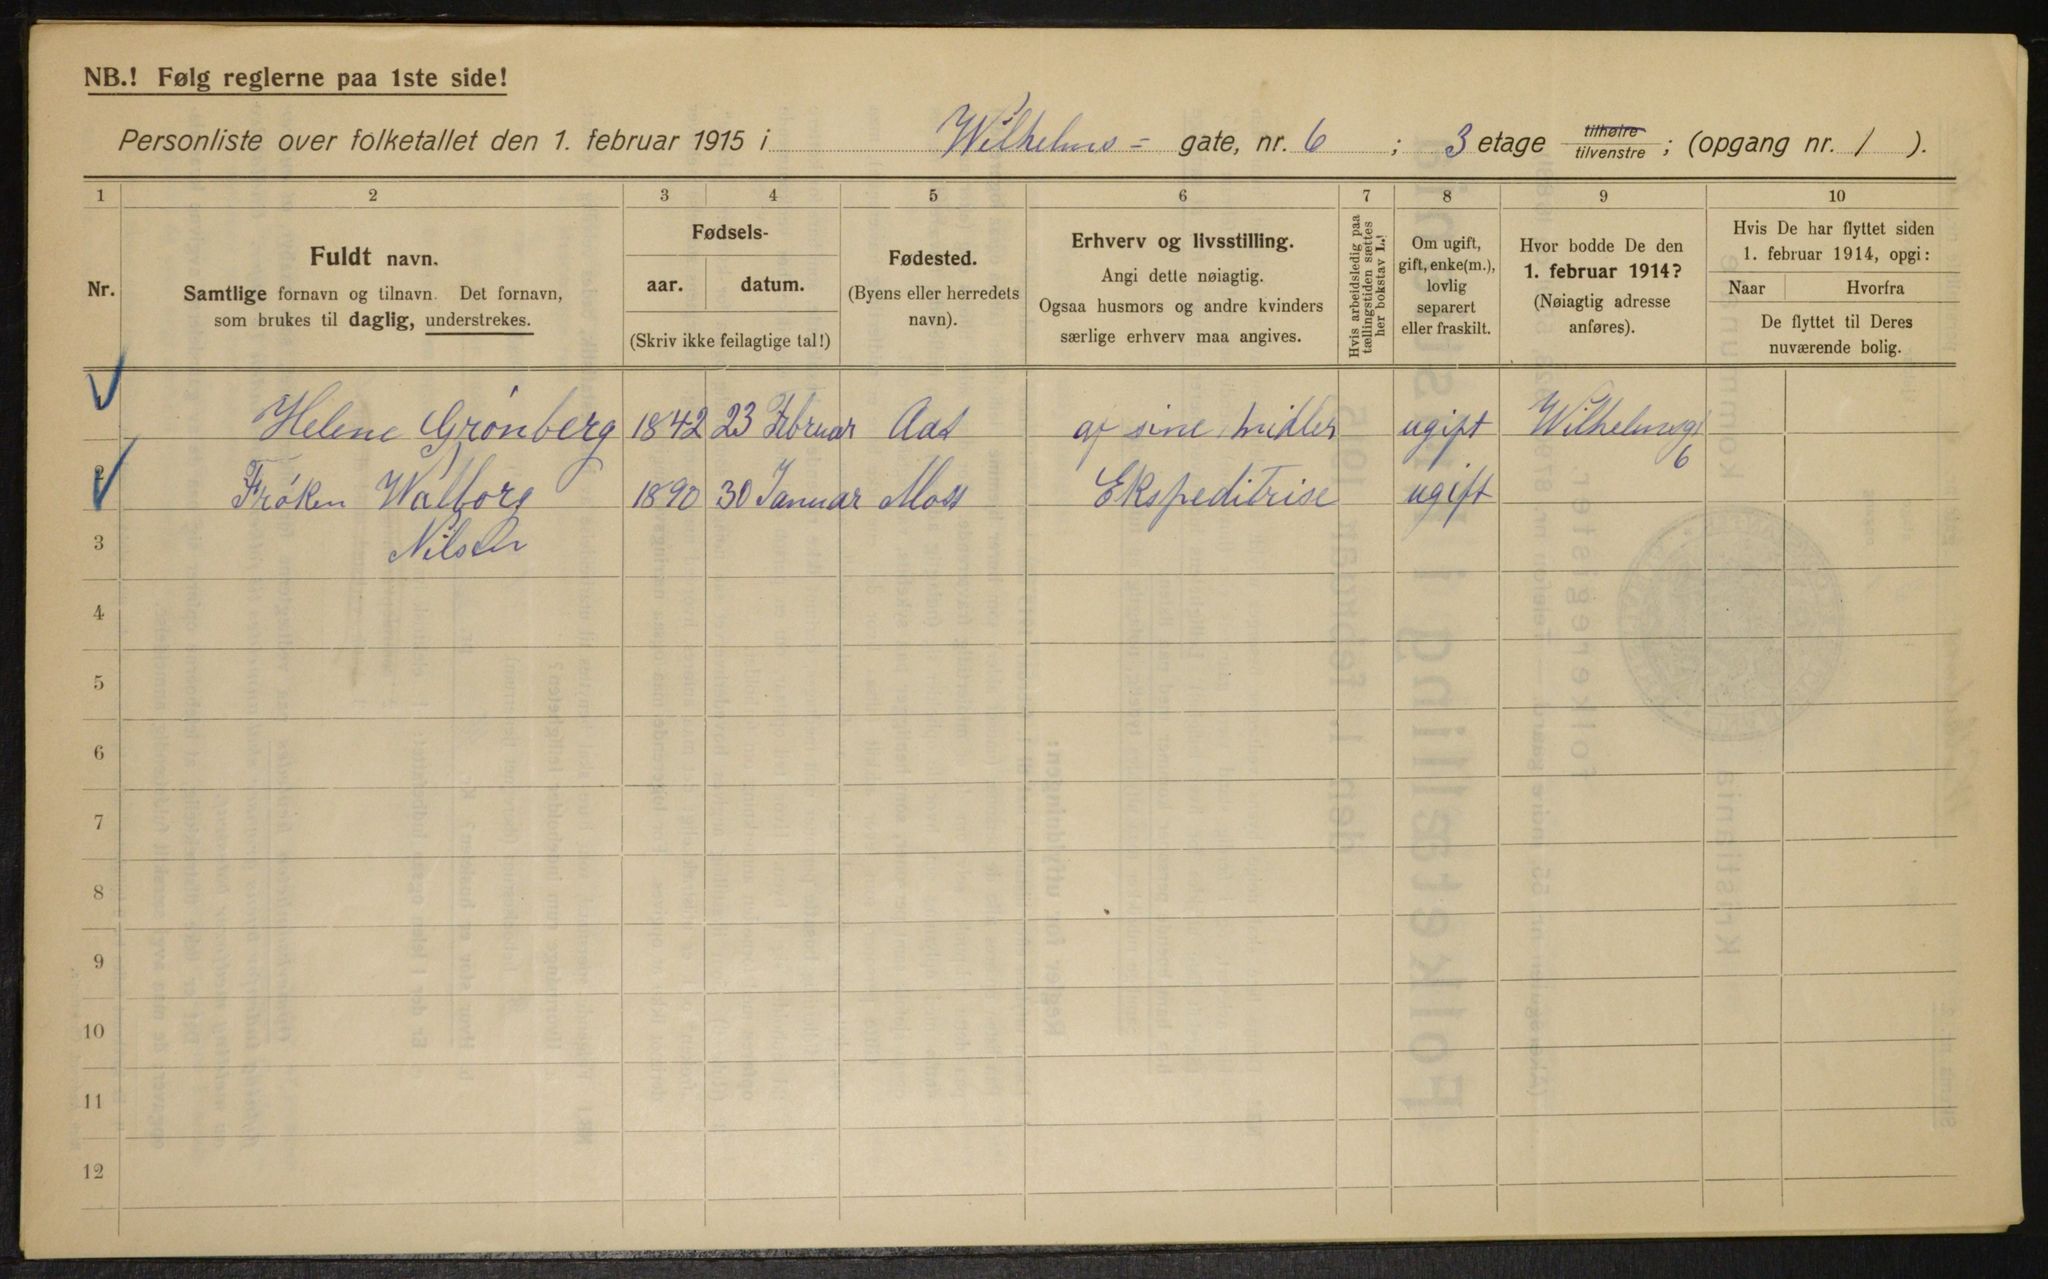 NB.! Følg reglerne paa 1ste side!
Personliste over folketallet den 1. februar 1915 i Wilhelms= gate, nr. 6 ; 3 etage tilhøire tilvenstre ; (opgang nr. 1 ).
1 2 3 4 5 6 7 8 9 10
Nr.
Fuldt navn.
Samtlige fornavn og tilnavn. Det fornavn,
som brukes til daglig, understrekes.
Fødsels-
aar. datum.
(Skriv ikke feilagtige tal!)
Fødested.
(Byens eller herredets
navn).
Erhverv og livsstilling.
Angi dette nøiagtig.
Ogsaa husmors og andre kvinders
særlige erhverv maa angives.
Hvis arbeidsledig paa
tællingstiden sættes
her bokstav L.!
Om ugift,
gift, enke(m.),
lovlig
separert
eller fraskilt.
Hvor bodde De den
1. februar 1914?
(Nøiagtig adresse
anføres).
Hvis De har flyttet siden
1. februar 1914, opgi:
Naar Hvorfra
De flyttet til Deres
nuværende bolig.
Helene Grønberg 1842 23 Februar Aas af sine midler ugift Wilhelmsg
6
Frøken Walborg 1890 30 Januar Moss Ekspeditrise ugift
3 Nilsen
4
5
6
7
8
9
10
11
12